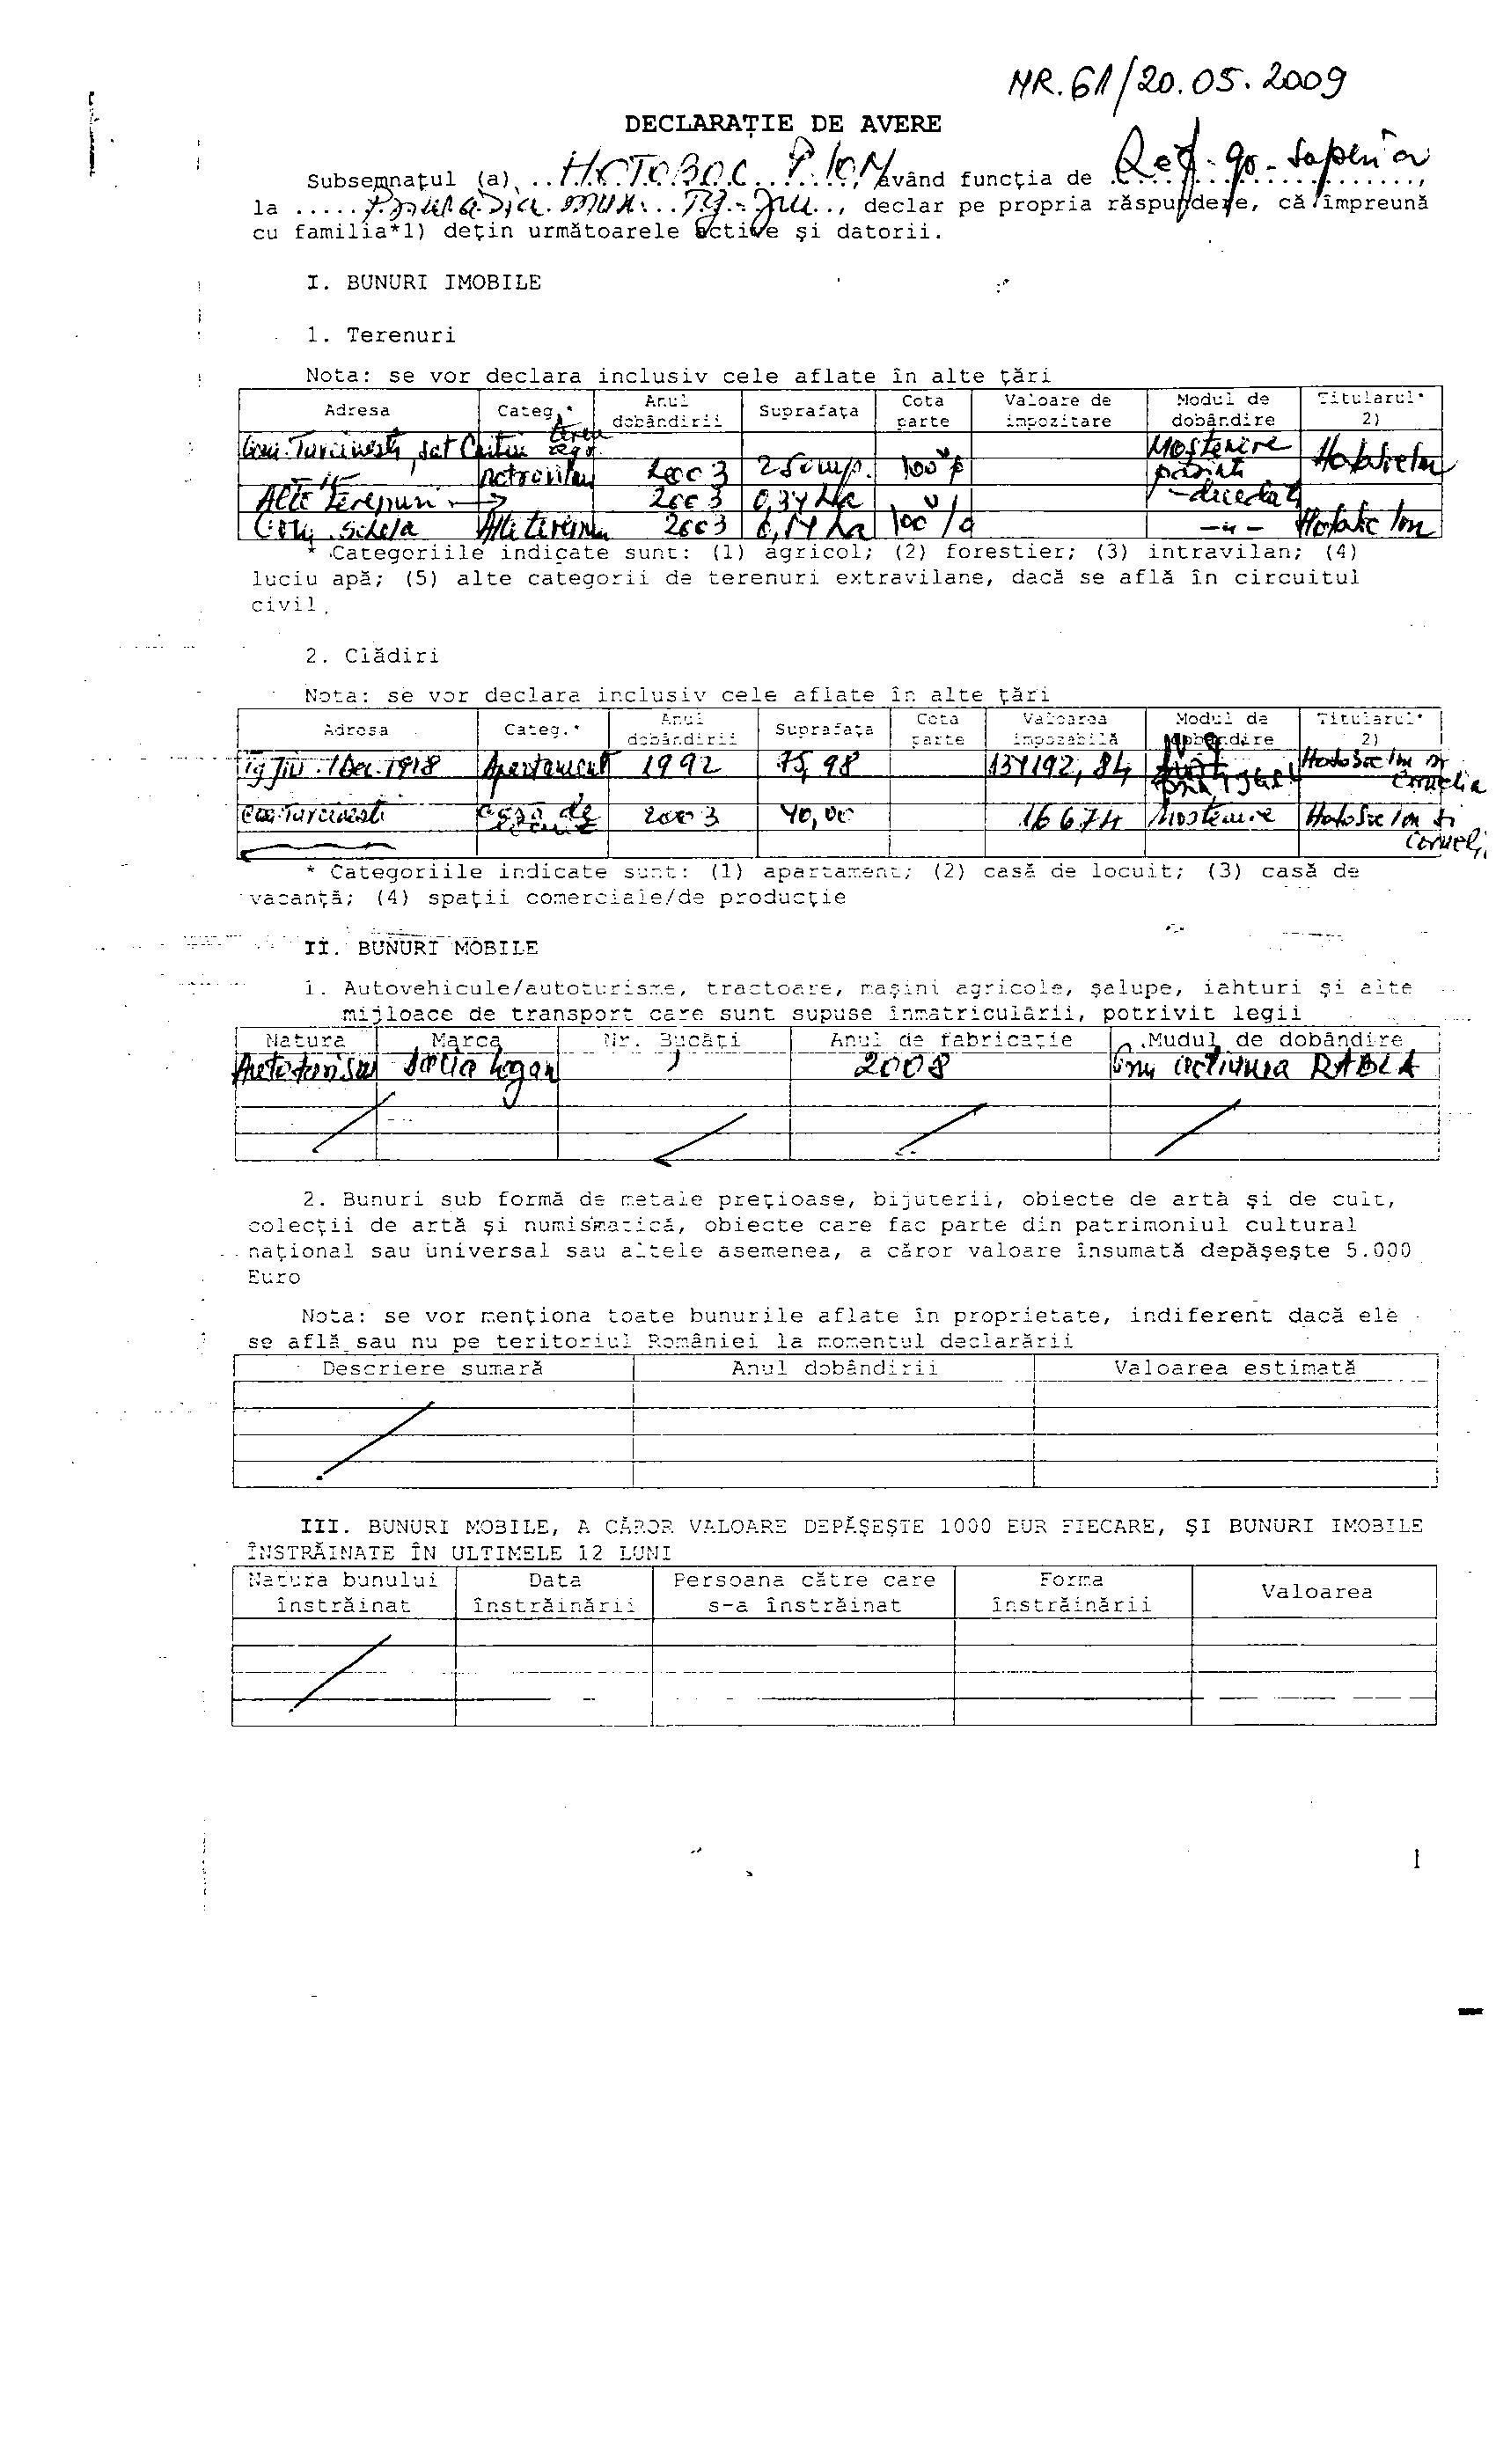 NR. 61/20.05.2009
DECLARAŢIE DE AVERE
Subsemnaţul (a) ..HOTOBOC P. ION, având funcţia de Ref. gr. superior,
la ..... Primăria mun. Tg-Jiu.., declar pe propria răspundere, că împreună
cu familia*1) deţin următoarele active şi datorii.
I. BUNURI IMOBILE
1. Terenuri
Nota: se vor declara inclusiv cele aflate în alte ţări
Adresa Categ.* Anul dobândirii Suprafaţa Cota parte Valoare de impozitare Modul de dobândire Titularul* 2)
Com. Turcinesti, sat Mostenire
2003 250 mp. 100% părinti
Alte terenuri 2003 0,34 ha decedati
Com. Schela Alte terenuri 2003 0,14 ha 100% -"- Ion
* Categoriile indicate sunt: (1) agricol; (2) forestier; (3) intravilan; (4)
luciu apă; (5) alte categorii de terenuri extravilane, dacă se află în circuitul
civil.
2. Clădiri
Nota: se vor declara inclusiv cele aflate în alte ţări
Adresa Categ.* Anul dobândirii Suprafaţa Cota parte Valoarea impozabilă Modul de dobândire Titularul* 2)
Tg Jiu. 1 Dec. 1918 Apartament 1992 75,98 134192,84 Hotoboc Ion si Cornelia
Com. Turcinesti casa de 2003 40,00 16674 Mostenire Hotoboc Ion si Cornelia
* Categoriile indicate sunt: (1) apartament; (2) casă de locuit; (3) casă de
vacanţă; (4) spaţii comerciale/de producţie
II. BUNURI MOBILE
1. Autovehicule/autoturisme, tractoare, maşini agricole, şalupe, iahturi şi alte
mijloace de transport care sunt supuse înmatriculării, potrivit legii
Natura Marca Nr. Bucăţi Anul de fabricaţie Mudul de dobândire
Autoturism Dacia Logan 1 2008 Prin actiunea RABLA
2. Bunuri sub formă de metale preţioase, bijuterii, obiecte de artă şi de cult,
colecţii de artă şi numismatică, obiecte care fac parte din patrimoniul cultural
naţional sau universal sau altele asemenea, a căror valoare însumată depăşeşte 5.000
Euro
Nota: se vor menţiona toate bunurile aflate în proprietate, indiferent dacă ele
se află sau nu pe teritoriul României la momentul declarării
Descriere sumară Anul dobândirii Valoarea estimată
III. BUNURI MOBILE, A CĂROR VALOARE DEPĂŞEŞTE 1000 EUR FIECARE, ŞI BUNURI IMOBILE
ÎNSTRĂINATE ÎN ULTIMELE 12 LUNI
Natura bunului înstrăinat Data înstrăinării Persoana către care s-a înstrăinat Forma înstrăinării Valoarea
1